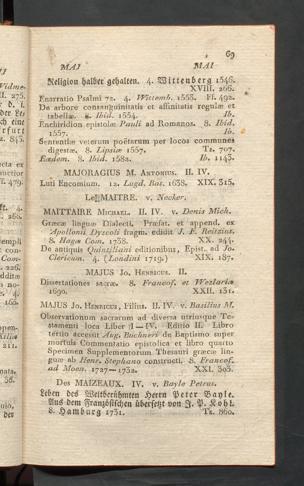 69
MAJ MAI
Religion halber gehalten. 4. Wittenberg 1546.
XVIII. 266.
Enarratio Psalmi 72. 4. Wittemb. 1553. Fl. 492.
De arbore consanguinitatis et affinitatis regulæ et
tabellæ. 8. Ibid. 1554. Ib.
Enchiridion epistolæ Pauli ad Romanos. 8. Ibid.
1557. Ib.
Sententiæ veterum poëtarum per locos communes
digestæ. 8. Lipsiæ 1557. Ts. 707.
Eædem. 8. Ibid. 1582. Ib. 1143.
MAJORAGIUS M. Antonius. II. IV.
Luti Encomium. 12. Lugd. Bat. 1638. XIX. 315.
Le MAITRE. v. Necker.
MAITTAIRE Michael. II. IV. v. Denis Mich.
Græcæ linguæ Dialecti. Præfat. et append. ex
Apollonii Dyscoli fragm. edidit F. F. Reitzius.
8. Hagæ Com. 1738. XX. 241.
De antiquis Quintiliani editionibus, Epist. ad Jo.
Clericum. 4. (Londini 1719.) XIX. 187.
MAJUS Jo. Henricus. II.
Dissertationes sacræ. 8. Francof. et Wezlariæ
1690. XXII. 151.
MAJUS Jo. Henricus, Filius. II. IV. v. Basilius M.
Observationum sacrarum ad diversa utriusque Te-
stamenti loca Liber I—IV. Editio II. Libro
tertio accessit Aug. Buchneri de Baptismo super
mortuis Commentatio epistolica et libro quarto
Specimen Supplementorum Thesauri græcæ lin-
guæ ab Henr. Stephano constructi. 8. Francof.
ad Moen. 1727—1732. XXI. 303.
Des MAIZEAUX. IV. v. Bayle Petrus.
Leben des Weltberühmten Herrn Peter Bayle.
Aus dem Französischen übersetzt von J. P. Kohl.
8. Hamburg 1731. Ts. 860.